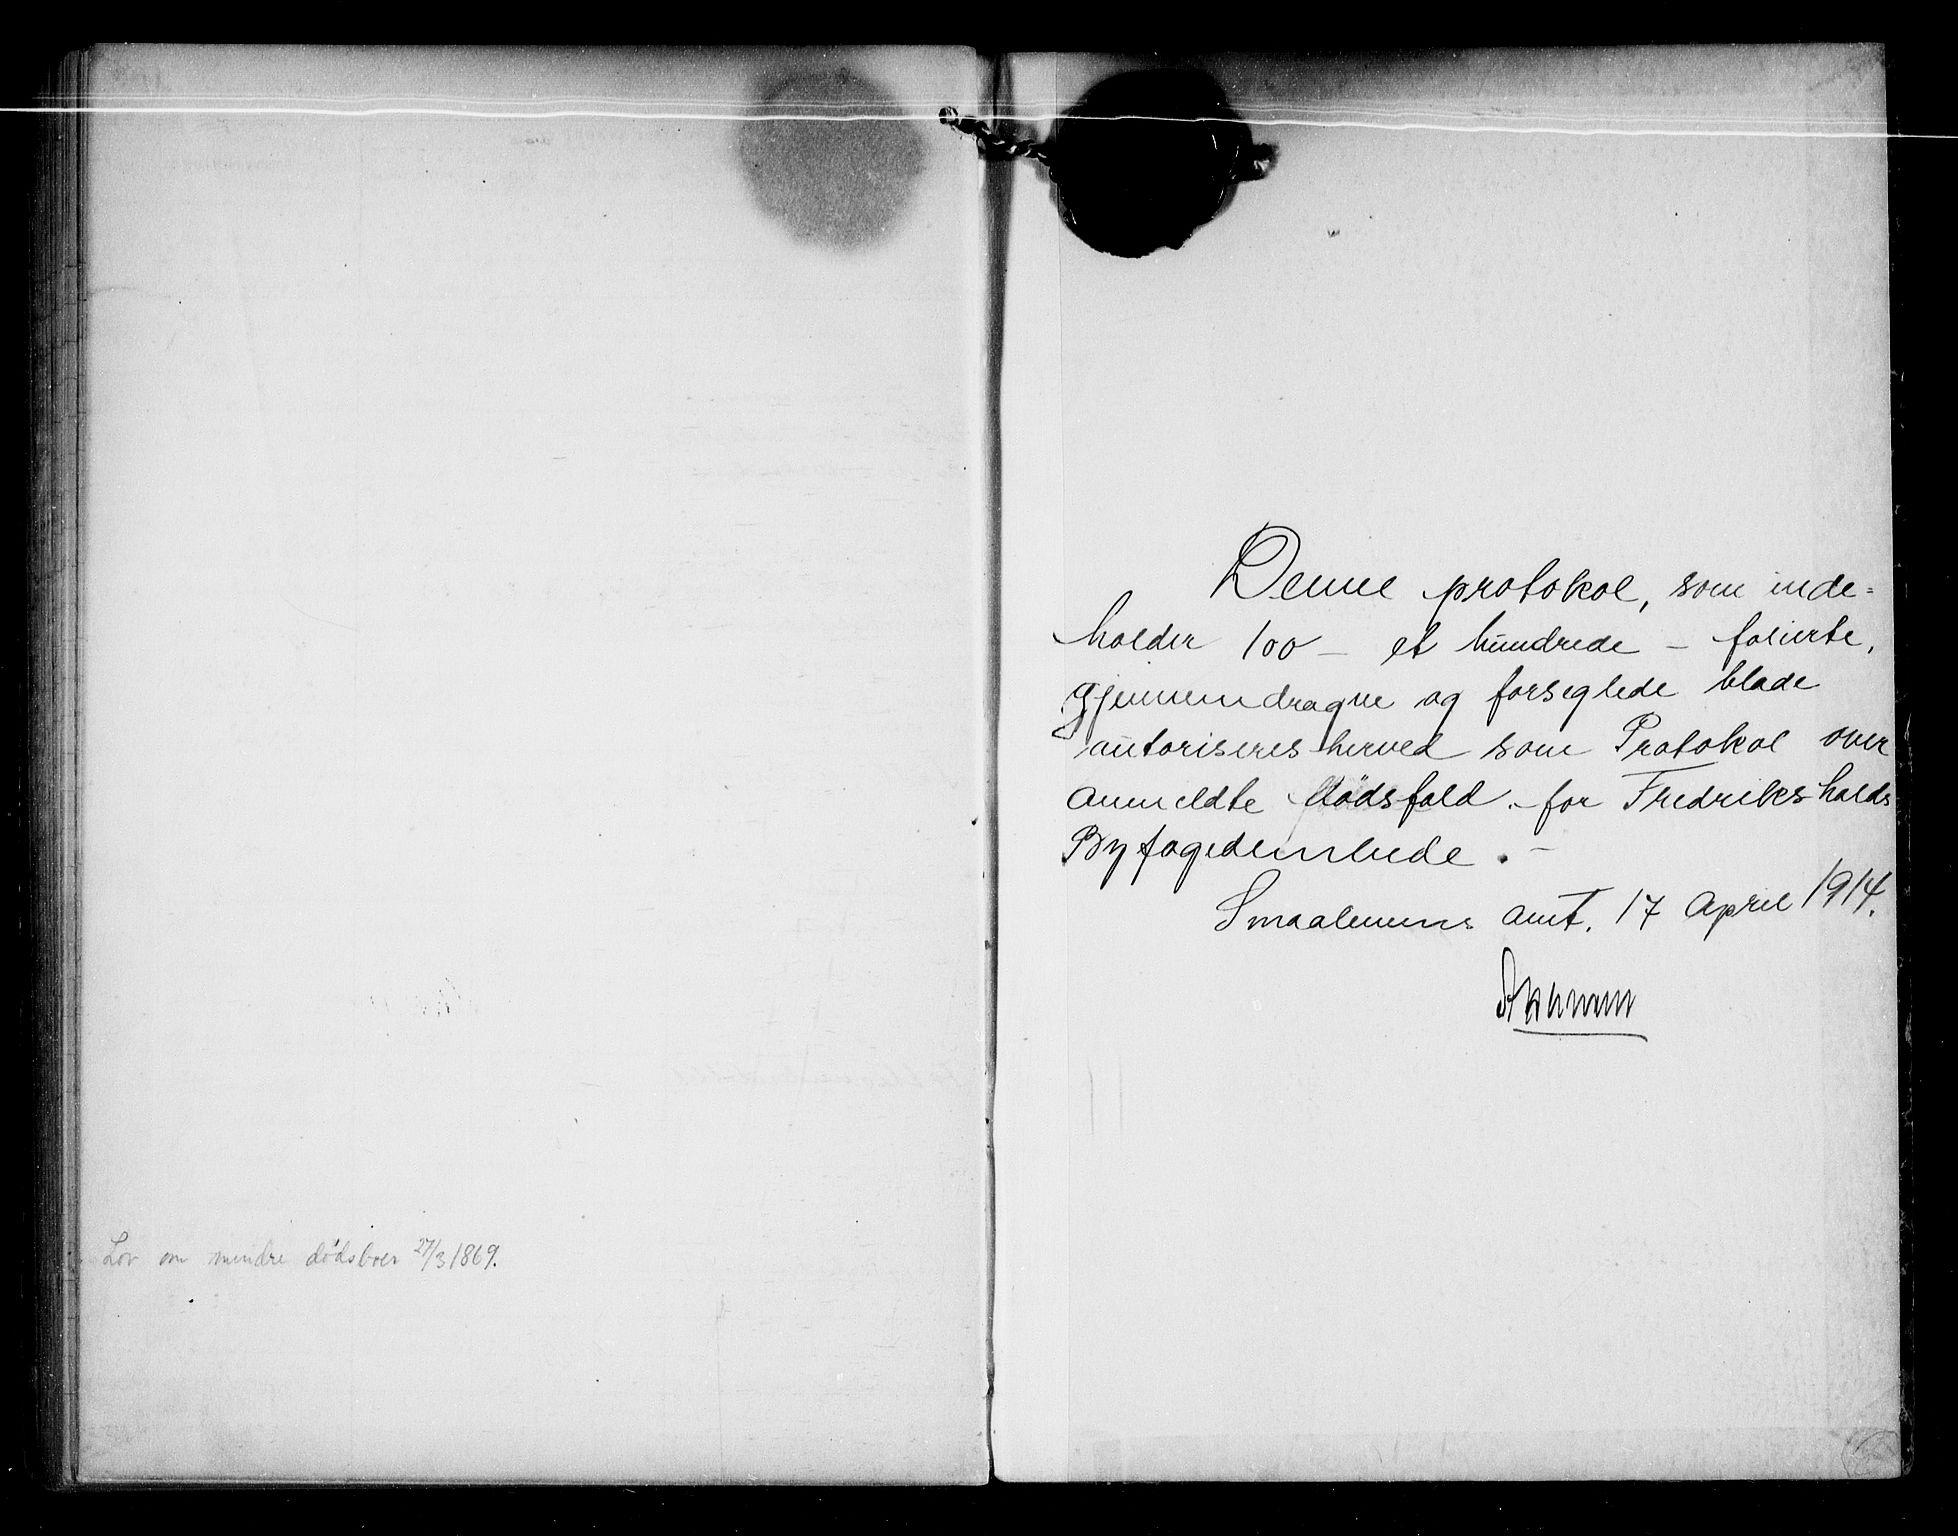 Lov om mindre dødsboer 27/3 1869.
Denne protokol, som inde=
holder 100 – et hundrede – folierte,
gjennemdragne og forseglede blade
autoriseres herved som Protokol over
anmeldte dødsfald for Fredrikshalds
Byfogedembede. –
Smaalenenes amt, 17 April 1914.